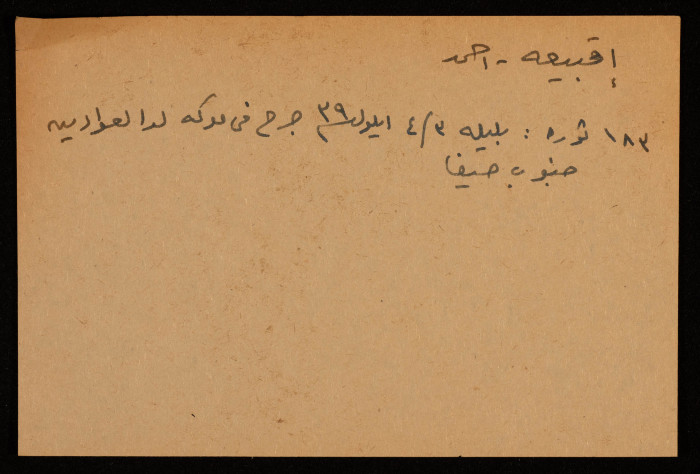 إقبيعه - احمد
١٨٣ ثوره : بليله ٤/٣ ايلول ٣٩ جرح فى معركه لدا لعوادين
جنوب حيفا